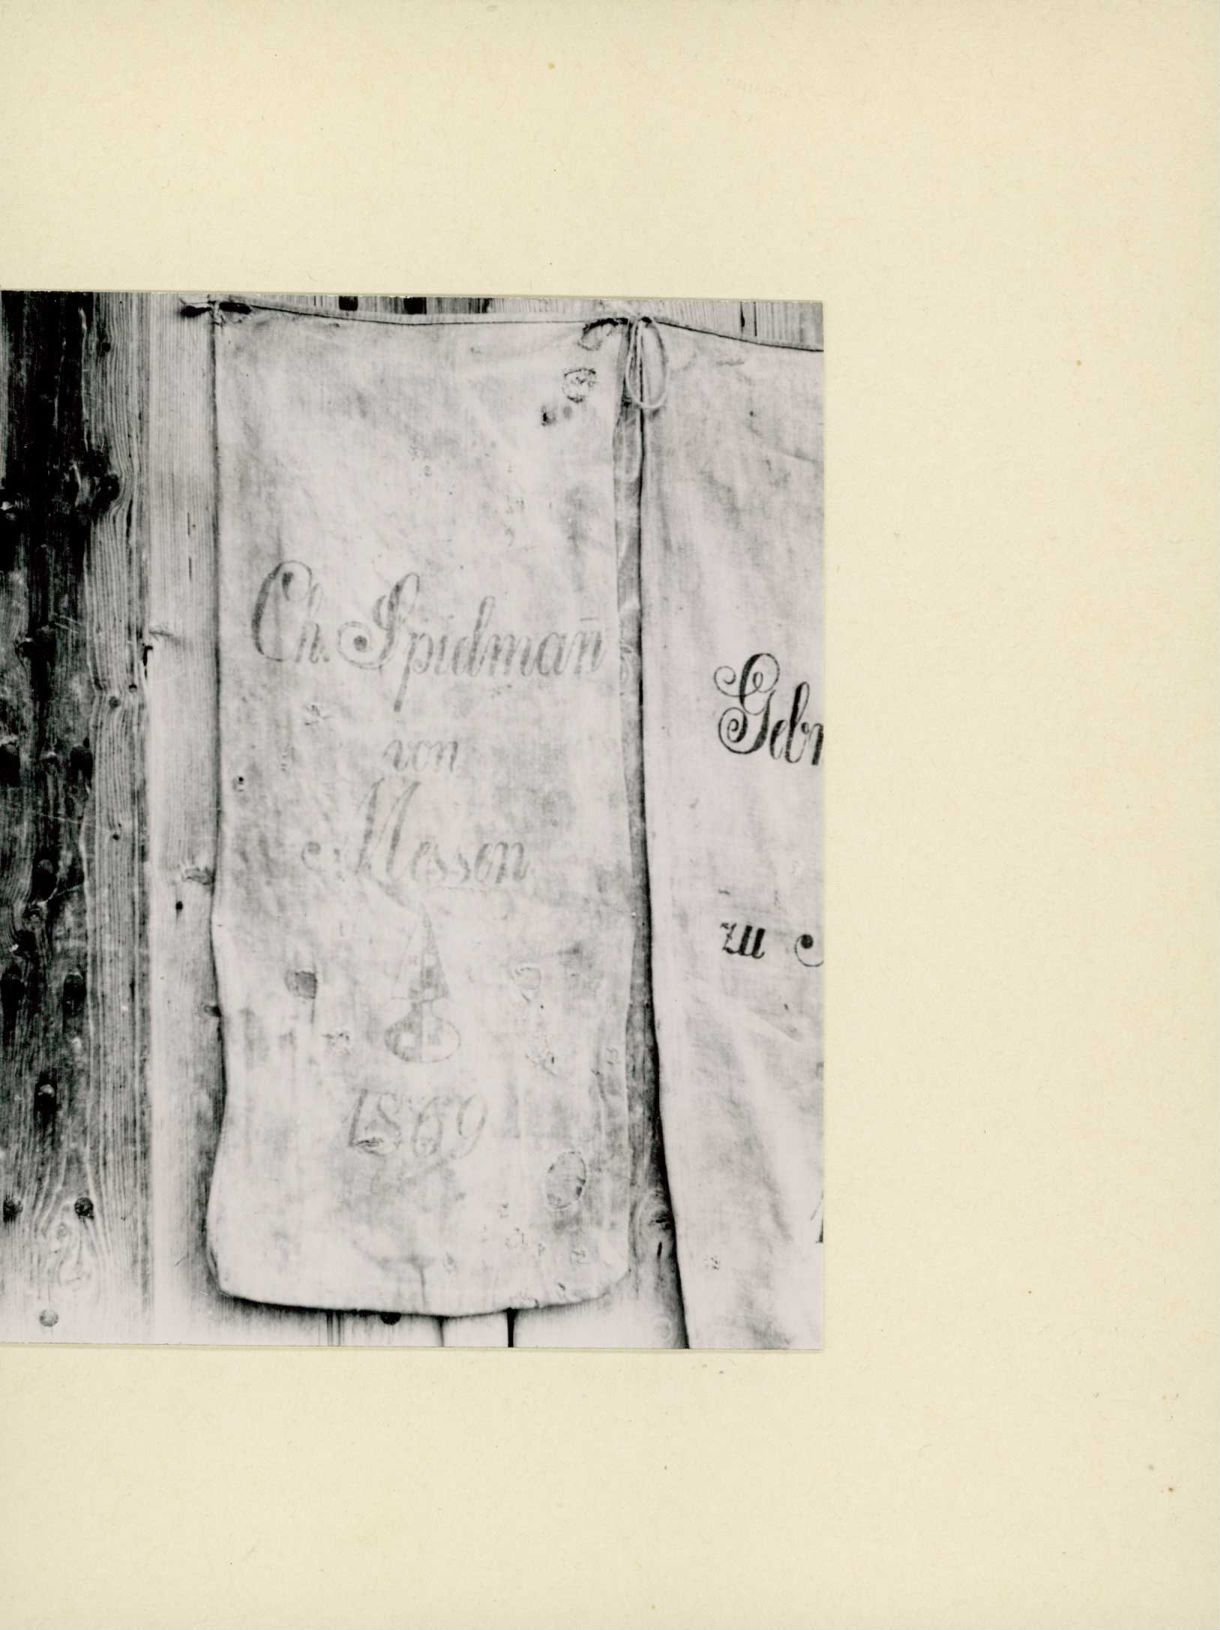 Ch. Spidmañ
von
Messen
1869
Gebr
zu